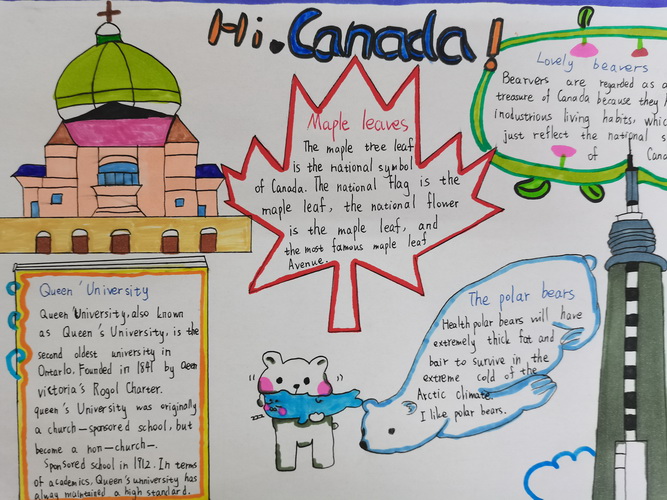 Hi. Canada!
Maple leaves
The maple tree leaf
is the national symbol
of Canada. The national flag is the
maple leaf, the national flower
is the maple leaf, and
the most famous maple leaf
Avenue.
Lovely beavers
Bearvers are regarded as a
treasure of Canada because they h
inoustrious living habits, whic
just reflect the national s
of Cana
Queen' University
Queen'University, also known
as Queen's University, is the
second oldest university in
Ontarlo. Founded in 1841 by Queen
victoria's Rogol Charter.
queen's University was originally
a church-sponsored school, but
become a non-church-.
Sponsored school in 1912. In terms
of academics, Queen's unniversity has
alway maintained a high standard.
The polar bears
Health polar bears will have
extremely thick fat and
hair to survive in the
extreme cold of the
Arctic climate.
I like polar bears.